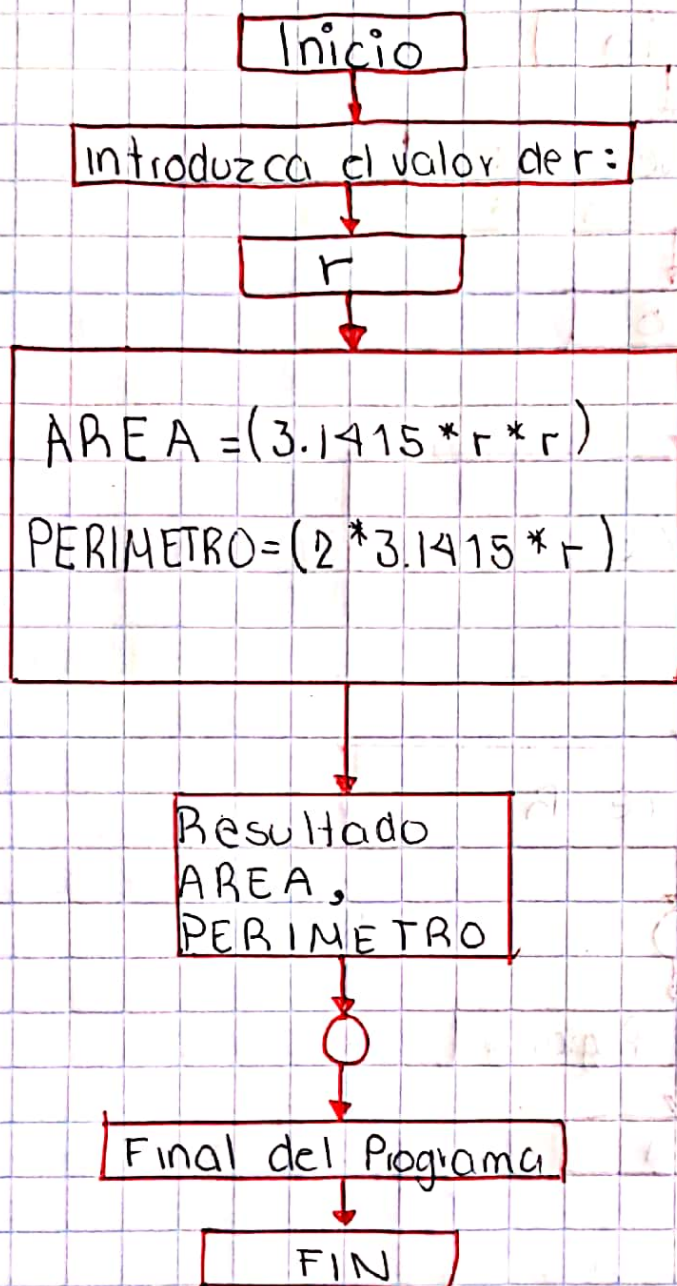 Inicio
introduzca el valor de r:
r
AREA =(3.1415*r*r)
PERIMETRO=(2*3.1415*r)
Resultado
AREA,
PERIMETRO
Final del Programa
FIN